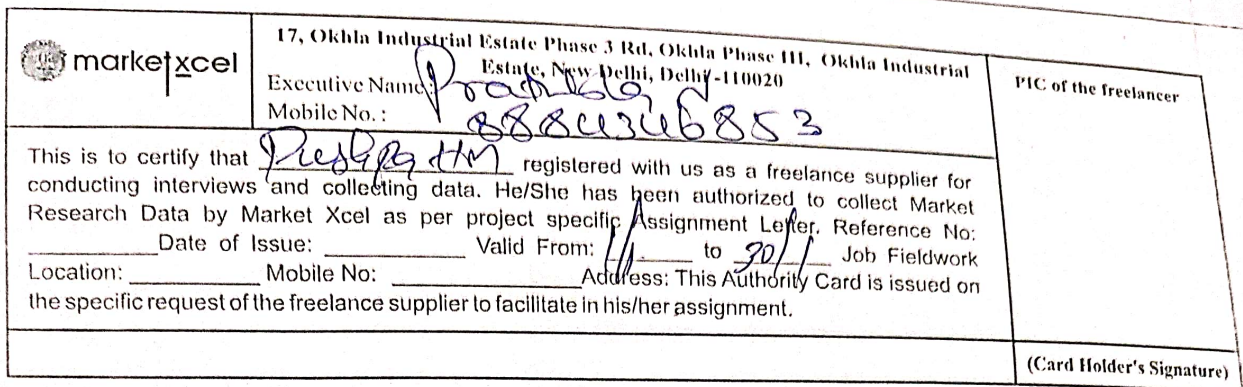 marketxcel
17, Okhla Industrial Estate Phase 3 Rd, Okhla Phase III, Okhla Industrial
Estate, New Delhi, Delhi-110020
Executive Name:
Mobile No.: 8884346853
This is to certify that Pushpa HM registered with us as a freelance supplier for
conducting interviews and collecting data. He/She has been authorized to collect Market
Research Data by Market Xcel as per project specific Assignment Letter. Reference No:
Date of Issue: Valid From: 1/1 to 30/1 Job Fieldwork
Location: Mobile No: Address: This Authority Card is issued on
the specific request of the freelance supplier to facilitate in his/her assignment.
PIC of the freelancer
(Card Holder's Signature)